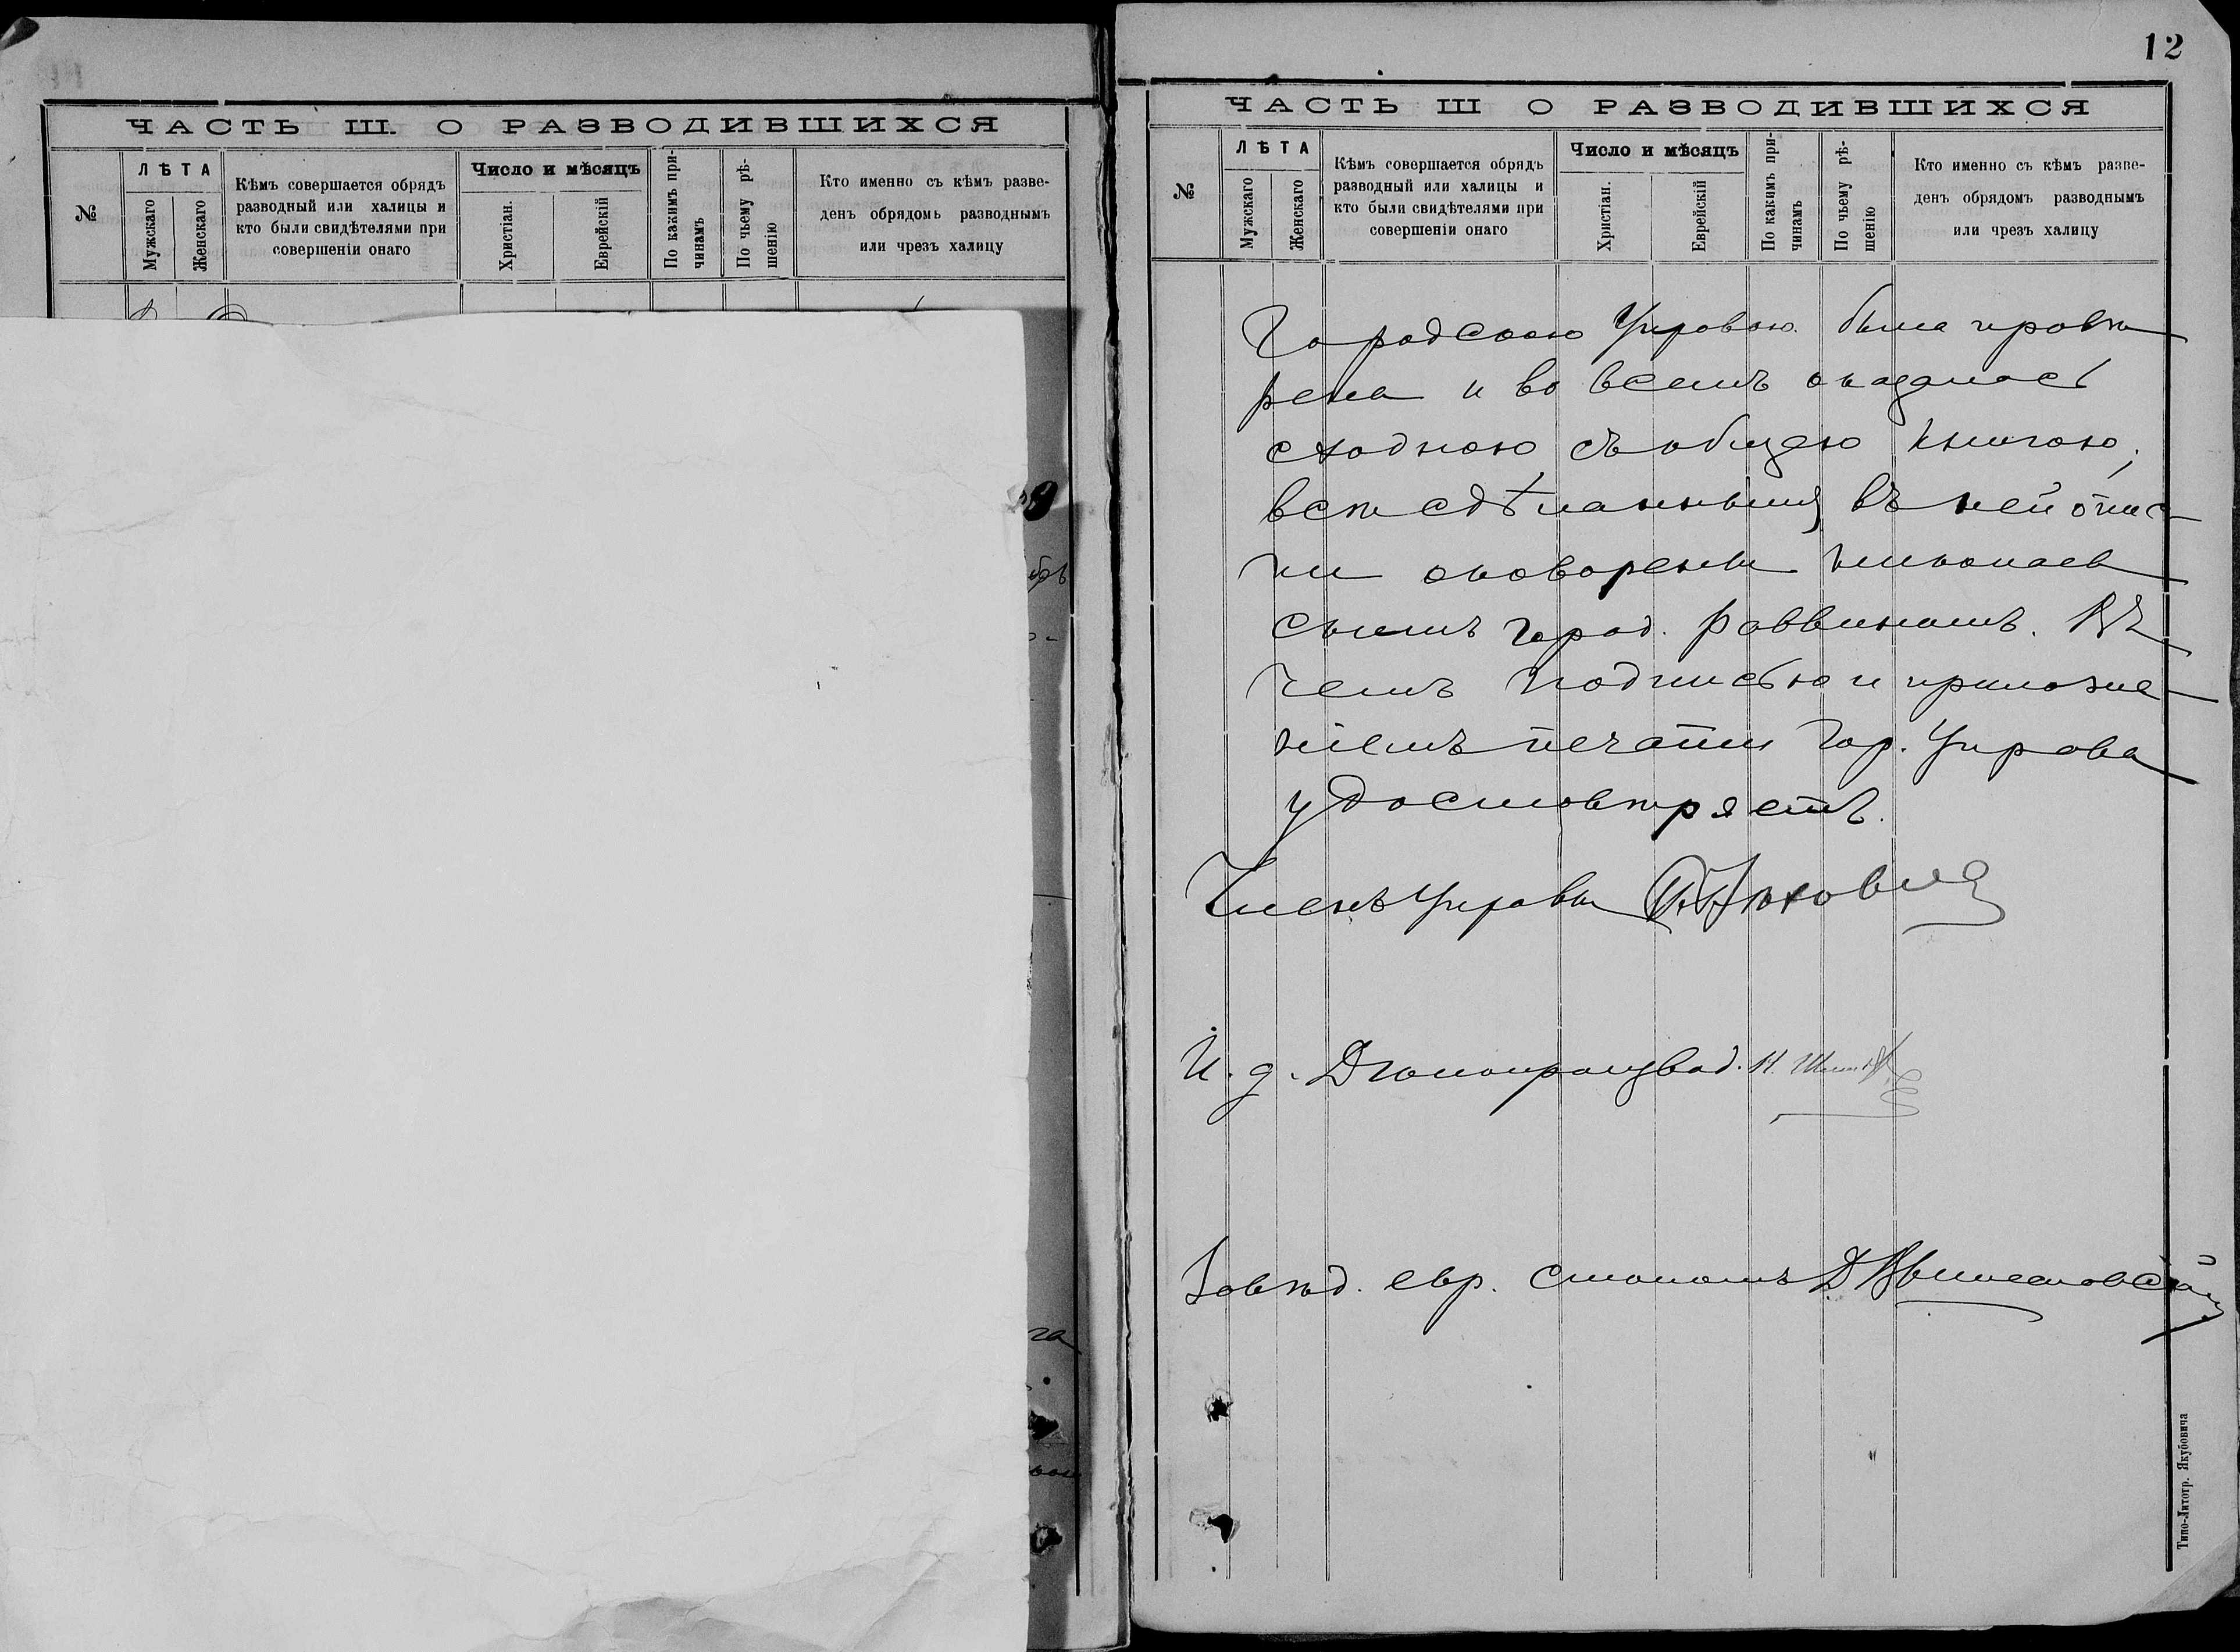 ЧАСТЬ III. О РАЗВОДИВШИХСЯ
№
ЛѢТА
Мужскаго
Женскаго
Кѣмъ совершается обрядъ
разводный или халицы и
кто были свидѣтелями при
совершеніи онаго
Число и мѣсяцъ
Христіан.
Еврейскій
По какимъ при-
чинамъ
По чьему рѣ-
шенію
Кто именно съ кѣмъ разве-
денъ обрядомъ разводнымъ
или чрезъ халицу
12
ЧАСТЬ III О РАЗВОДИВШИХСЯ
№
ЛѢТА
Мужскаго
Женскаго
Кѣмъ совершается обрядъ
разводный или халицы и
кто были свидѣтелями при
совершеніи онаго
Число и мѣсяцъ
Христіан.
Еврейскій
По какимъ при-
чинамъ
По чьему рѣ-
шенію
Кто именно съ кѣмъ разве-
денъ обрядомъ разводнымъ
или чрезъ халицу
Городскою Управою была провѣ
рена и во всемъ оказалась
сходною съ общею книгою;
всѣ сдѣланныя въ ней
оговорены николаев
скимъ город. раввиномъ. Въ
чемъ подписью и приложе-
ніемъ печати Гор. Управа
удостовѣряетъ.
Членъ Управы
И. д. Дѣлопроизвод. Н.
Завѣд. евр. столомъ Д.
Типо-Литогр. Якубовича